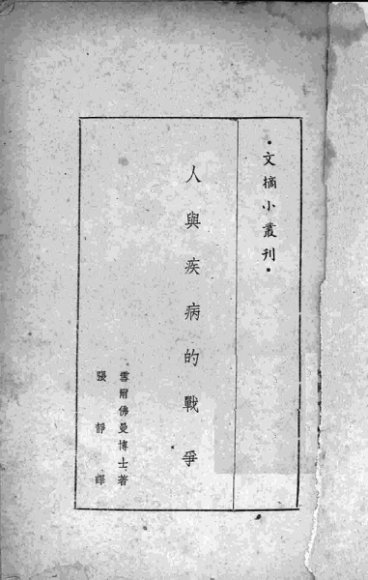 •文摘小叢刊•
人與疾病的戰爭
雲爾佛曼博士著
張靜譯